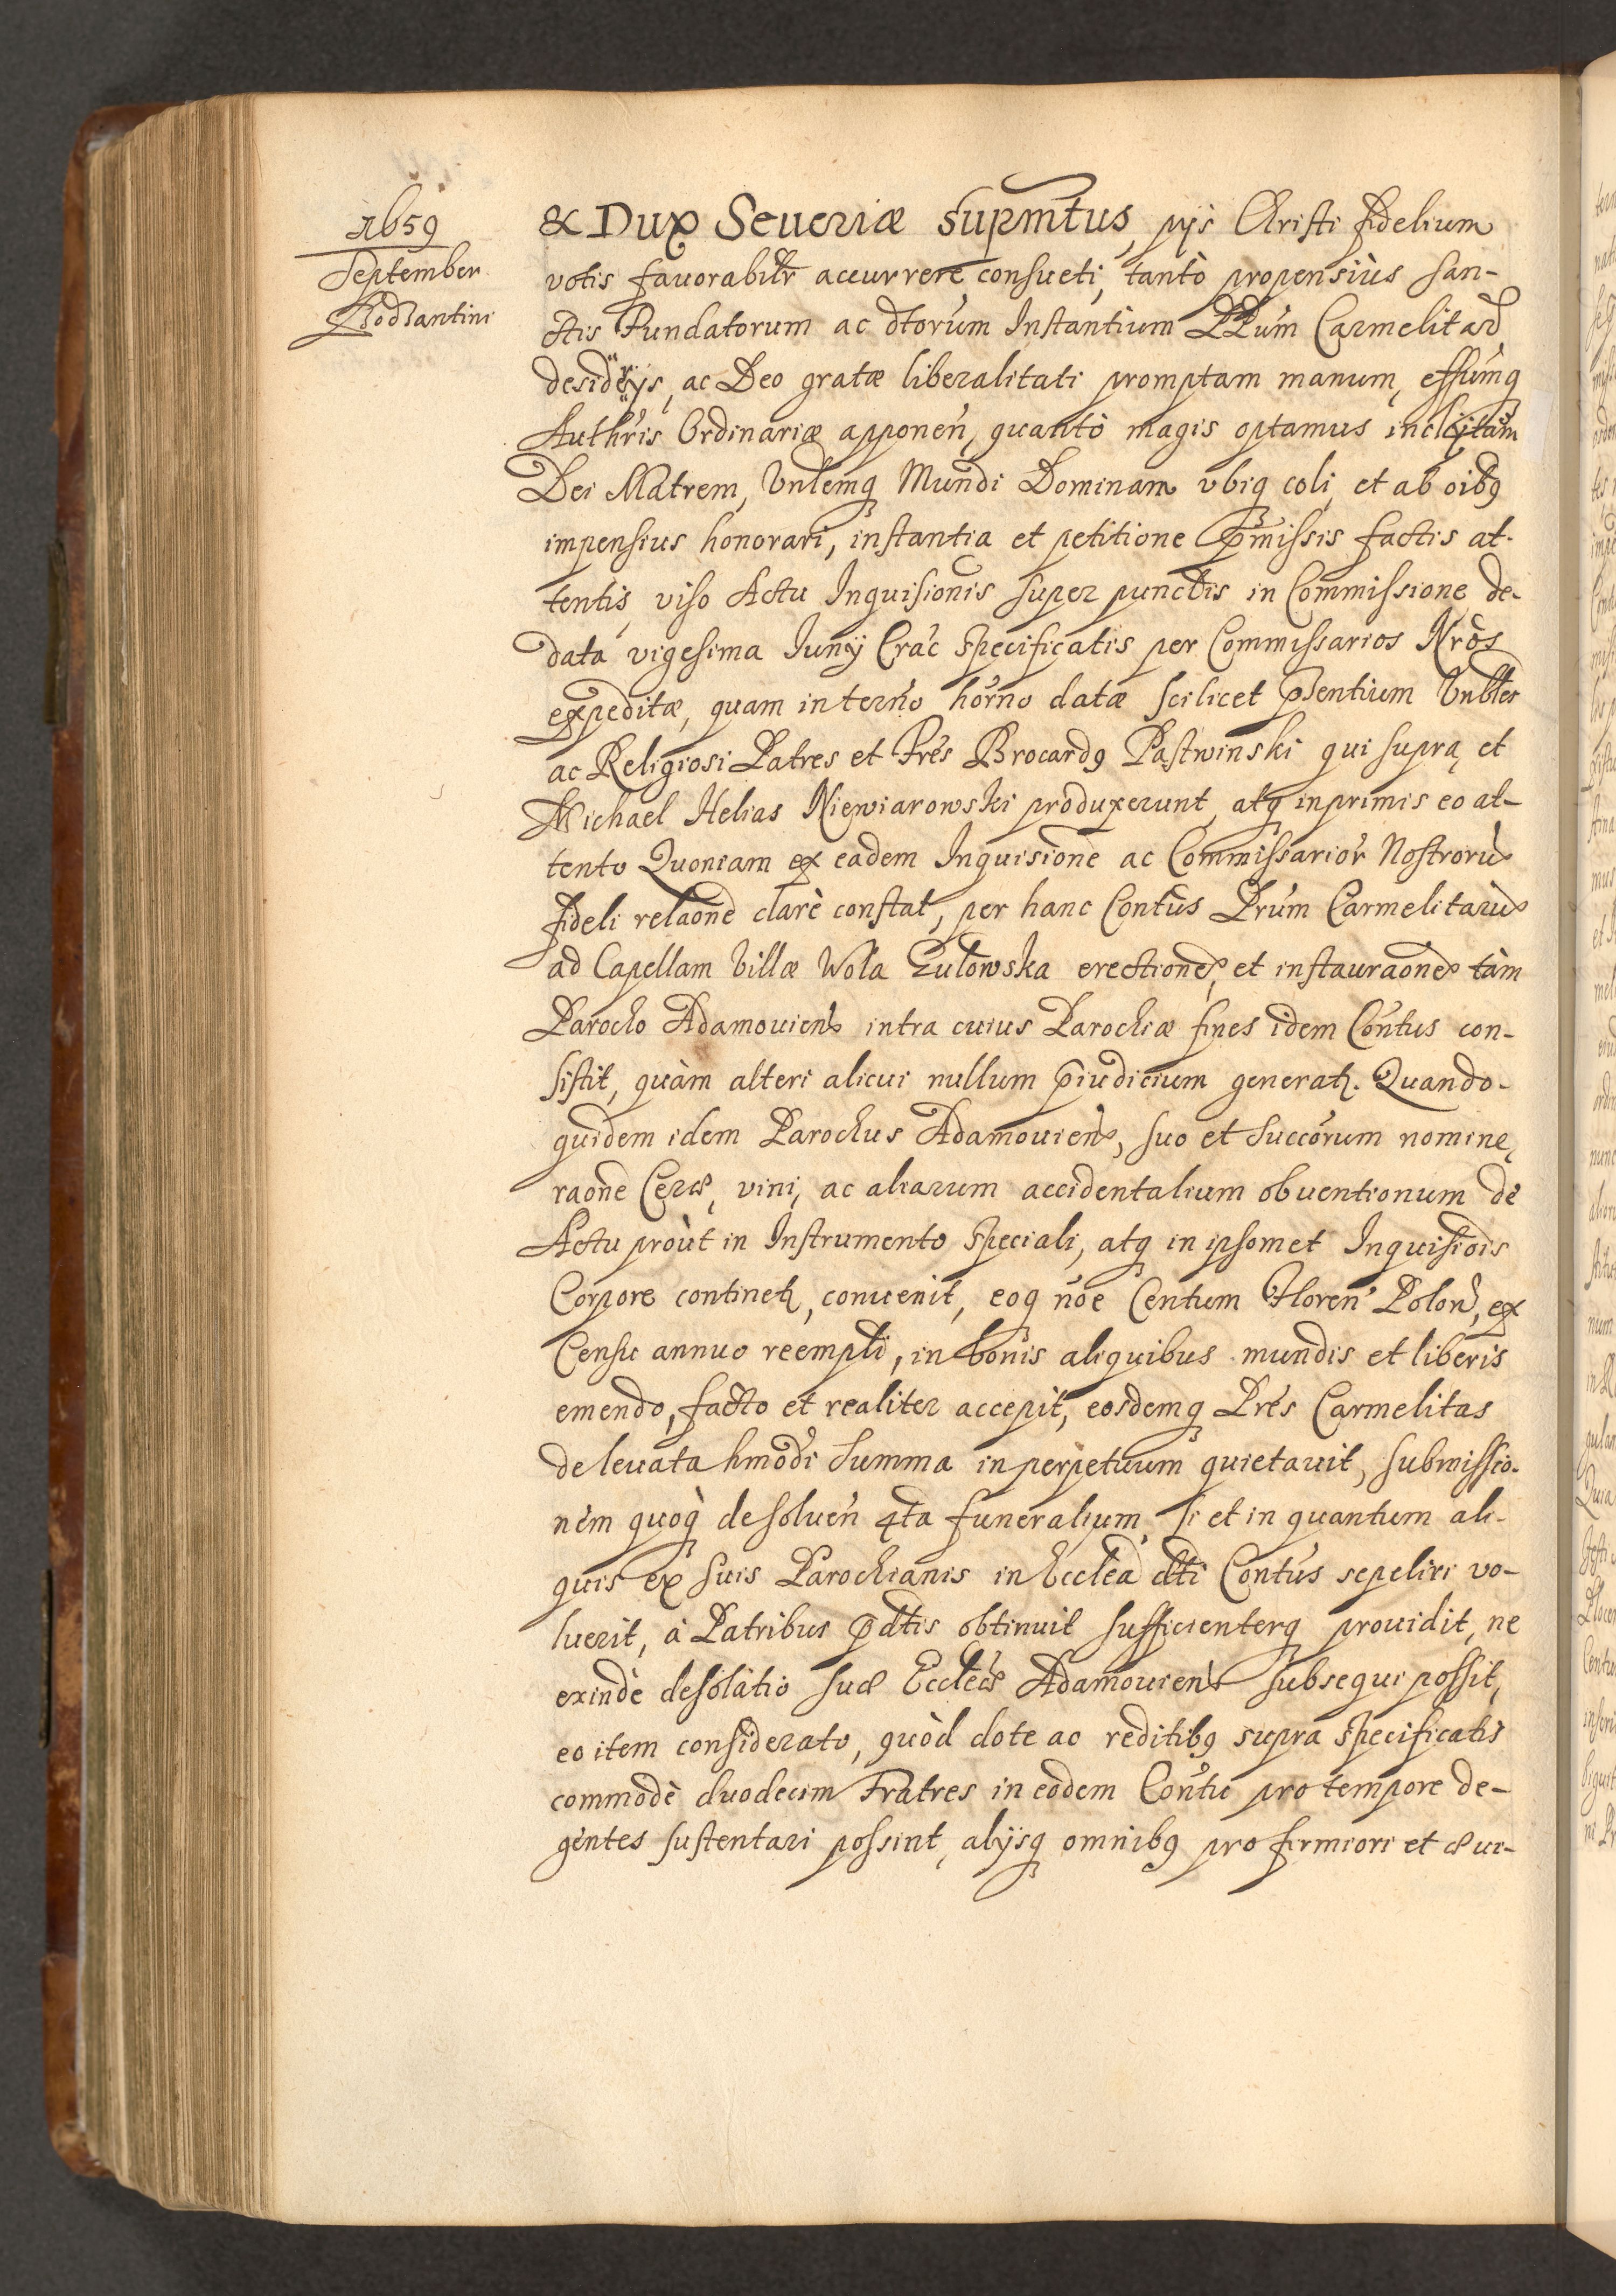 1659
September
Bodzantini
& Dux Seueriæ supmtus, pijs Christi fidelium
votis fauorabilr accurrere consueti, tantò propensiùs san-
ctis Fundatorum ac dtorum Instantium PPum Carmelitar
desiderijs, ac Deo gratæ liberalitati promptam manum, effumq
Authris Ordinariæ apponen, quantò magis optamus inclytam
Dei Matrem, Vnlemq Mundi Dominam vbiq coli, et ab oibq
impensius honorari, instantia et petitione pmissis factis at-
tentis, viso Actu Inquisionis super punctis in Commissione de-
data vigesima Iunij Crac specificatis per Commissarios Nros
expeditæ, quam in termo horno datæ scilicet pntium Vnbles
ac Religiosi Patres et Fres Brocardq Pastwinski qui supra, et
Michael Helias Niewiarowski produxerunt, atq inprimis eo at-
tento Quoniam ex eadem Inquisione ac Commissarior Nostroru
fideli relaone clarè constat, per hanc Contus Prum Carmelitaru
ad Capellam Villæ Wola Gułowska erectione, et instauraone tàm
Parocho Adamouien intra cuius Parochiæ fines idem Contus con-
sistit, quàm alteri alicui nullum piudicium generat. Quando-
quidem idem Parochus Adamouien, suo et Succorum nomine,
raone Ceræ, vini, ac aliarum accidentalium obuentionum de
Actu prout in Instrumento speciali, atq in ipsomet Inquisiois
Corpore continet, conuenit, eoq noe Centum Floren Polon, ex
Censu annuo reempti, in bonis aliquibus mundis et liberis
emendo, facto et realiter accepit, eosdemq Pres Carmelitas
de leuata hmodi Summa in perpetuum quietauit, submissio-
nem quoq de soluen 4ta funeralium, si et in quantum ali-
quis ex suis Parochianis in Ecclea dti Contus sepeliri vo-
luerit, à Patribus pdtis obtinuit sufficienterq prouidit, ne
exindè desolatio suæ Eccleæ Adamouien subsequi possit,
eo item considerato, quòd dote ac reditibq supra specificatis
commodè duodecim Fratres in eodem Contu pro tempore de-
gentes sustentari possint, alijsq omnibq pro firmiori et æui-